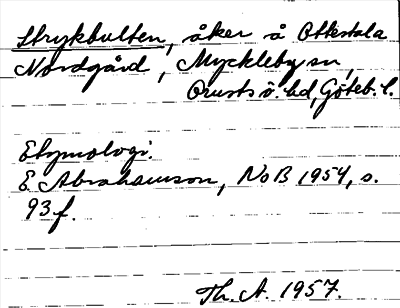 Strykbulten, åker å Ottestala
Nordgård, Myckleby sn,
Orusts ö. hd, Göteb. l.
Etymologi.
E. Abrahamson, NoB 1954, s.
93 f.
Th. A. 1957.